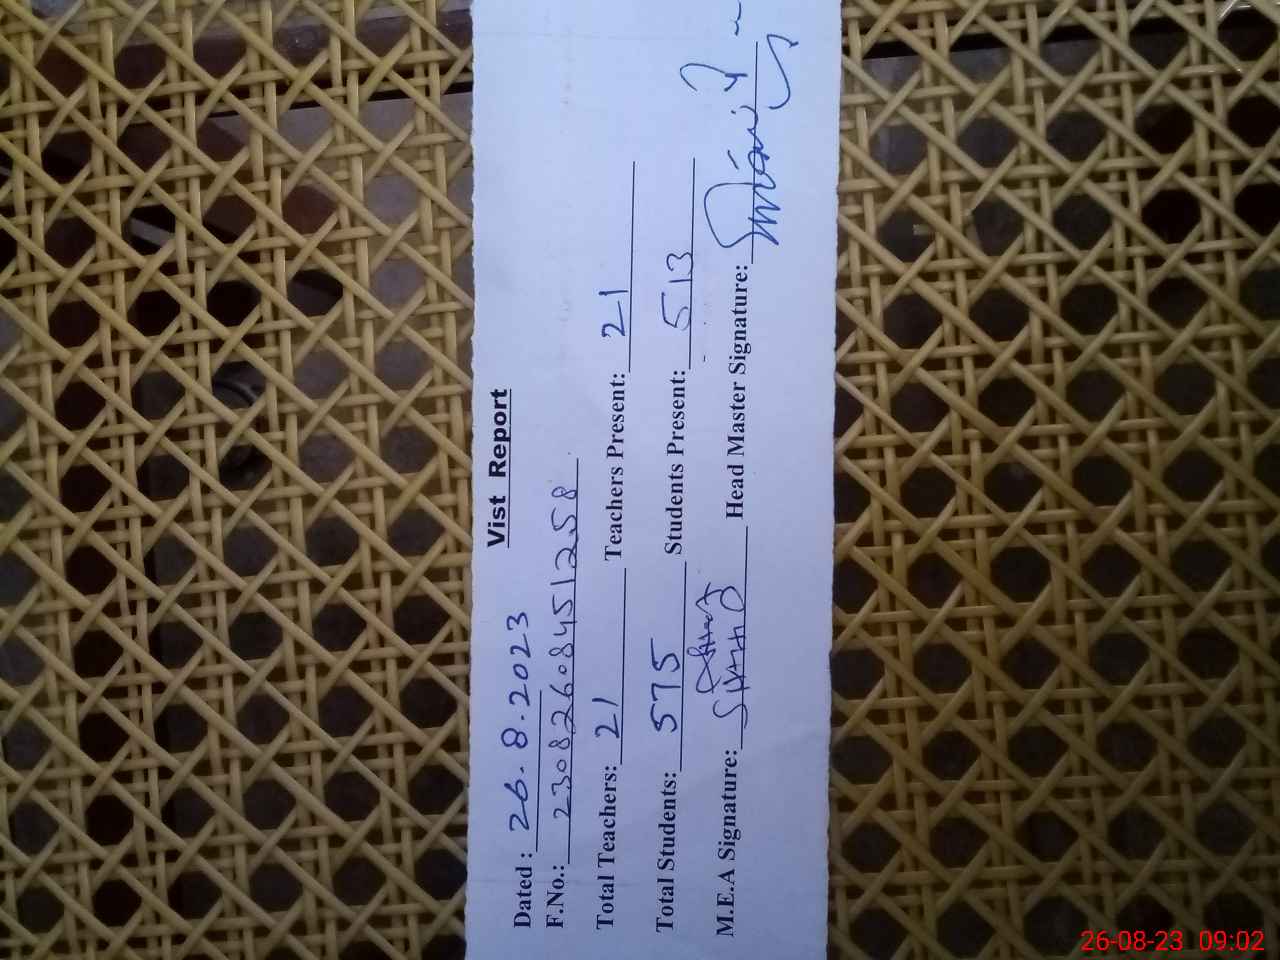 Vist Report
Dated : 26.8.2023
F.No.: 230826084512 58
Total Teachers: 21 Teachers Present: 21
Total Students: 575 Students Present: 513
M.E.A Signature: Head Master Signature:
26-08-23 09:02